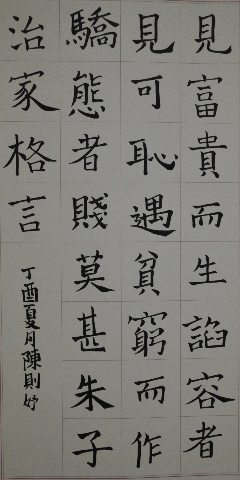 見富貴而生諂容者
見可恥遇貧窮而作
驕態者賤莫甚朱子
治家格言
丁酉夏月陳則妤